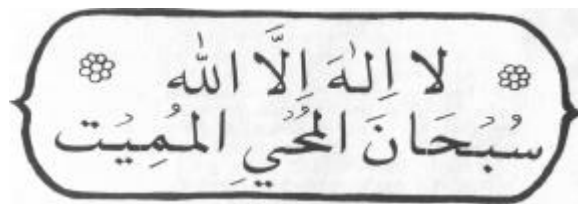 لا اِلٰهَ اِلَّا اللّٰه
سُبْحَانَ الْمُحْيِ الْمُمِيْت